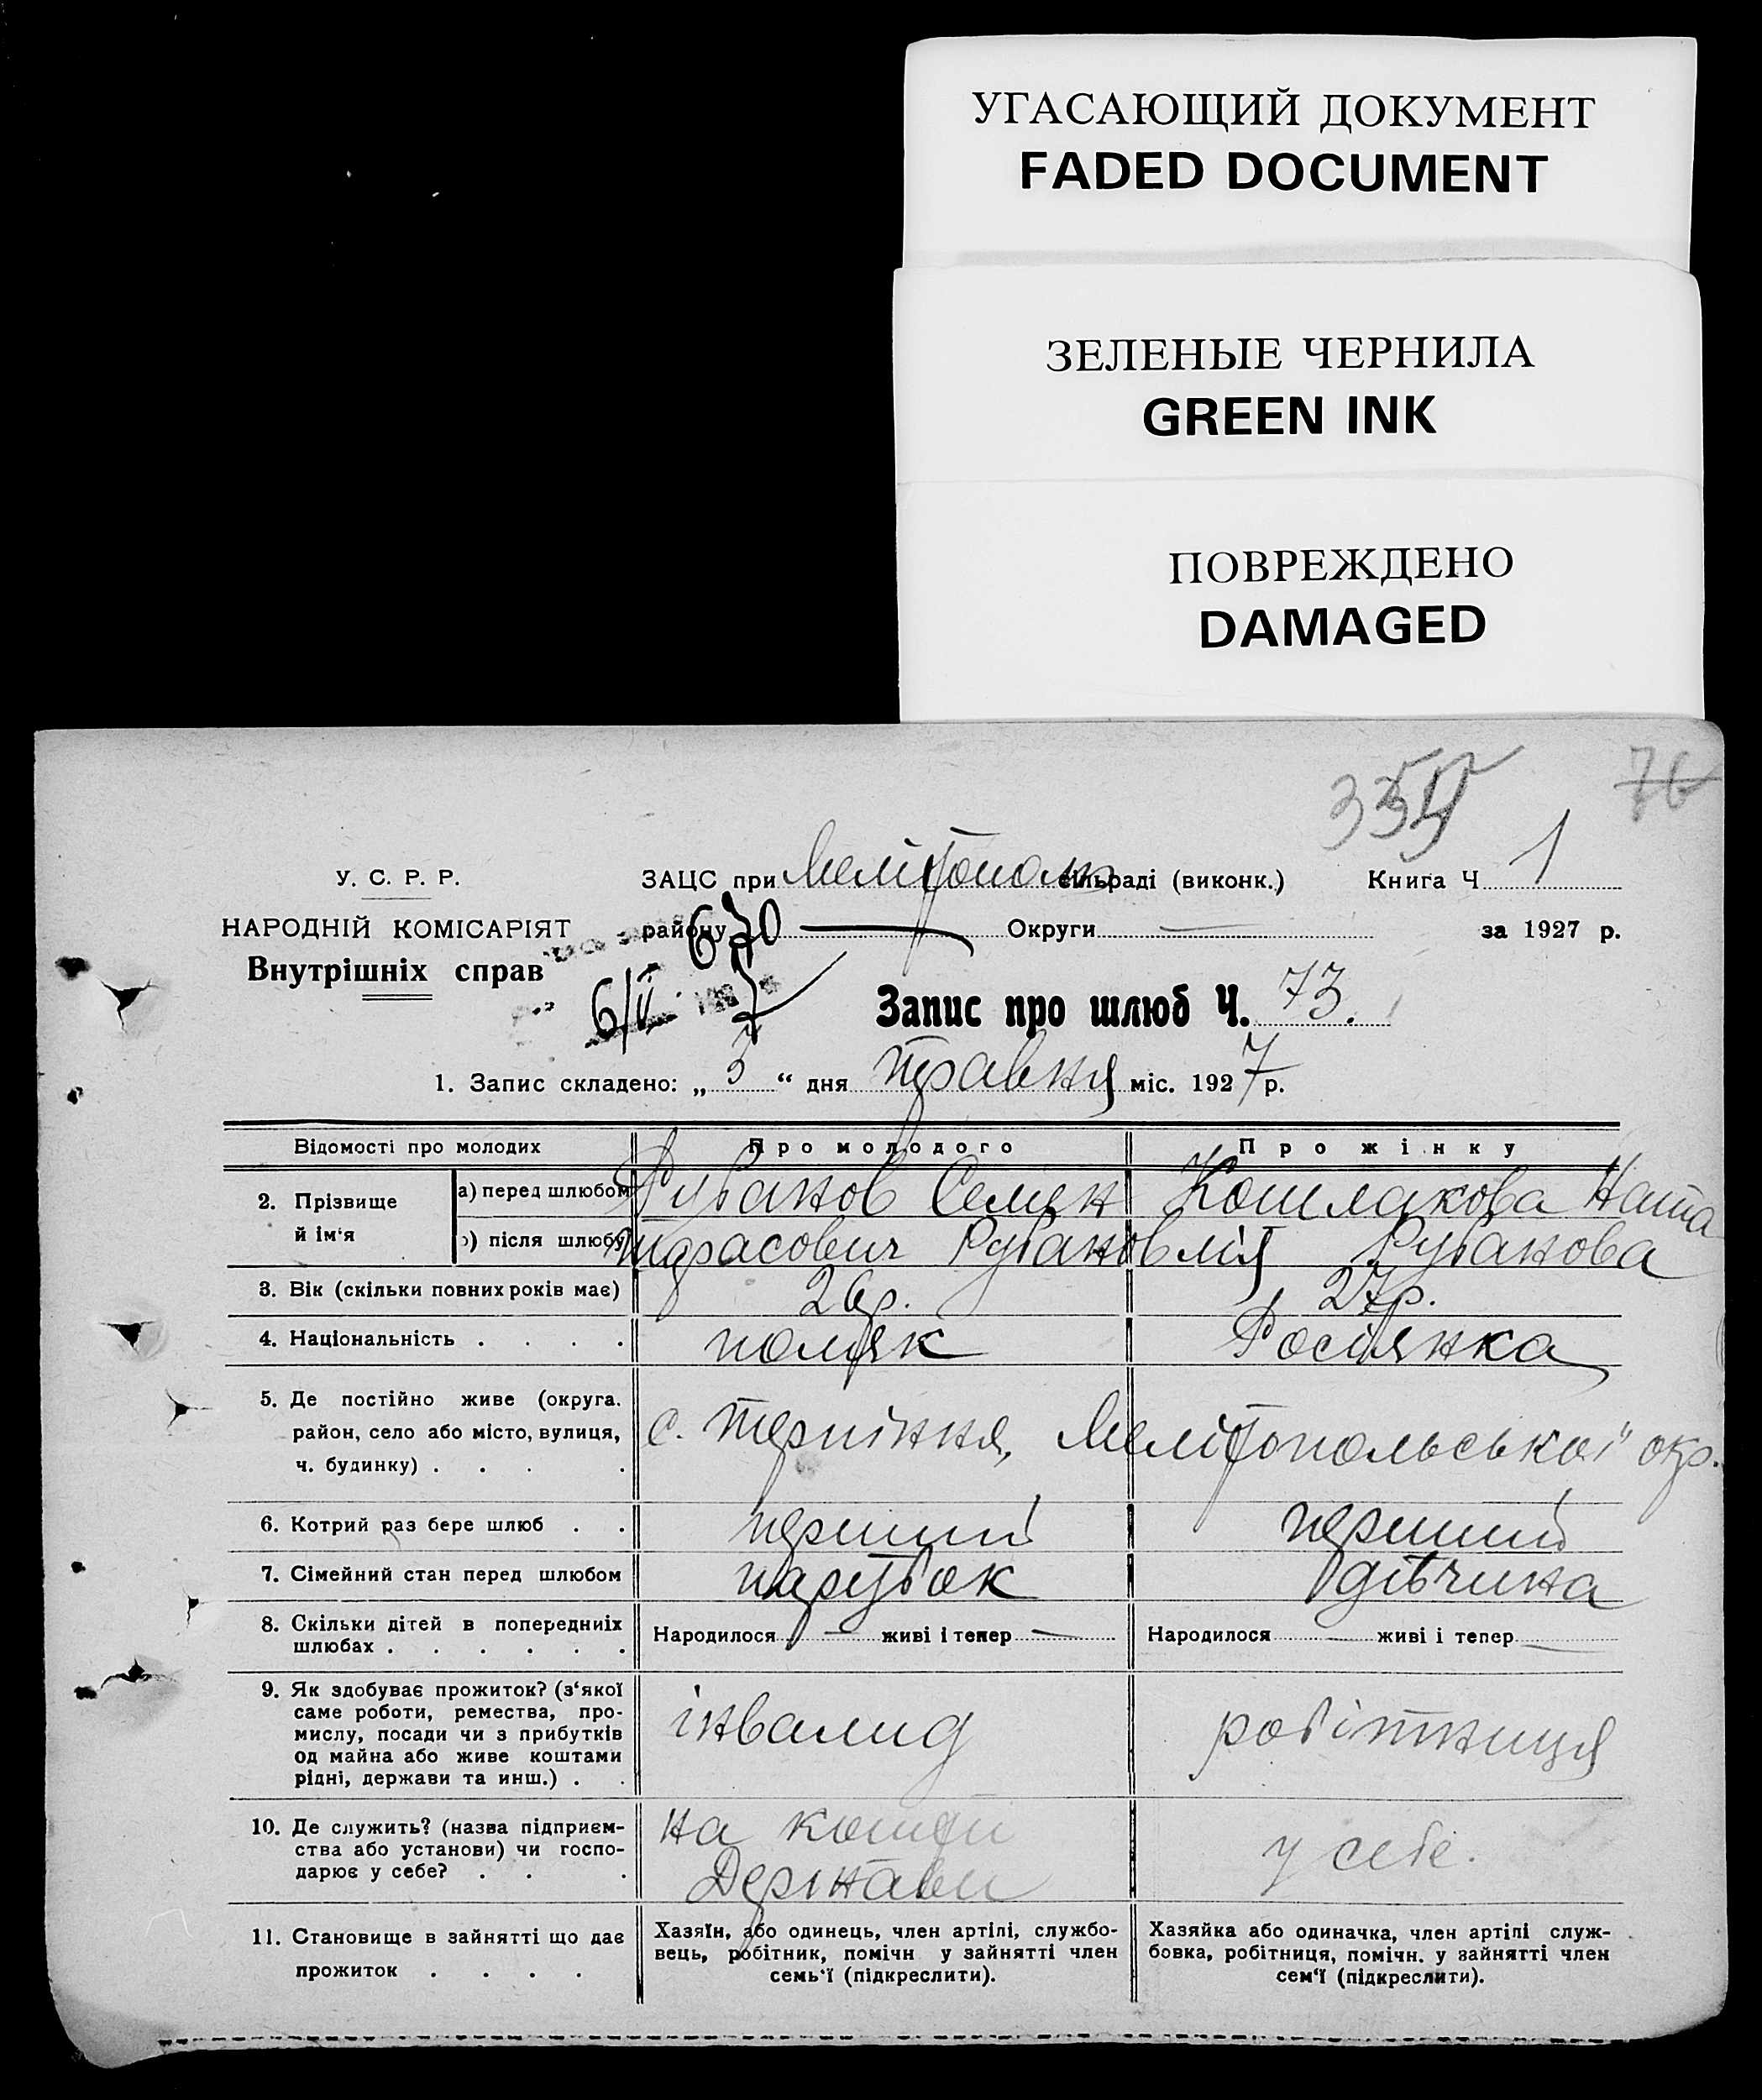 УГАСАЮЩИЙ ДОКУМЕНТ
FADED DOCUMENT
ЗЕЛЕНЫЕ ЧЕРНИЛА
GREEN INK
ПОВРЕЖДЕНО
DAMAGED
76
У. С. Р. Р.
ЗАЦС при Мелітополь сільраді (виконк.) Книга Ч 1
НАРОДНІЙ КОМІСАРІЯТ
району 670 — Округи — за 1927 р.
Внутрішніх справ
6/VI
Запис про шлюб Ч. 73.
1. Запис складено: „ 3 “ дня травня міс. 1927 р.
Відомості про молодих
Про молодого
Про жінку
2. Прізвище й ім‘я
а) перед шлюбом
Рубанов Семен
Кошлакова Ната
) після шлюбу
Тарасович Рубанов
лія Рубанова
3. Вік (скільки повних років має)
26р.
27р.
4. Національність . . . .
поляк
Росіянка
5. Де постійно живе (округа.
район, село або місто, вулиця,
ч. будинку) . . . .
с. Терпіння, Мелітопольської окр.
6. Котрий раз бере шлюб . .
перший
перший
7. Сімейний стан перед шлюбом
парубок
дівчина
8. Скільки дітей в попередниіх
шлюбах . . . . . .
Народилося — живі і тепер —
Народилося — живі і тепер —
9. Як здобуває прожиток? (з‘якої
саме роботи, ремества, про-
мислу, посади чи з прибутків
од майна або живе коштами
рідні, держави та инш.) . .
інвалид
робітниця
10. Де служить? (назва підприєм-
ства або установи) чи госпо-
дарює у себе? . . .
на кошти
Держави
у себе.
11. Становище в зайнятті що дає
прожиток . . . .
Хазяїн, або одинець, член артілі, службо-
вець, робітник, помічн у зайнятті член
семь‘ї (підкреслити).
Хазяйка або одиначка, член артілі служ-
бовка, робітниця, помічн. у зайнятті член
сем‘ї (підкреслити).